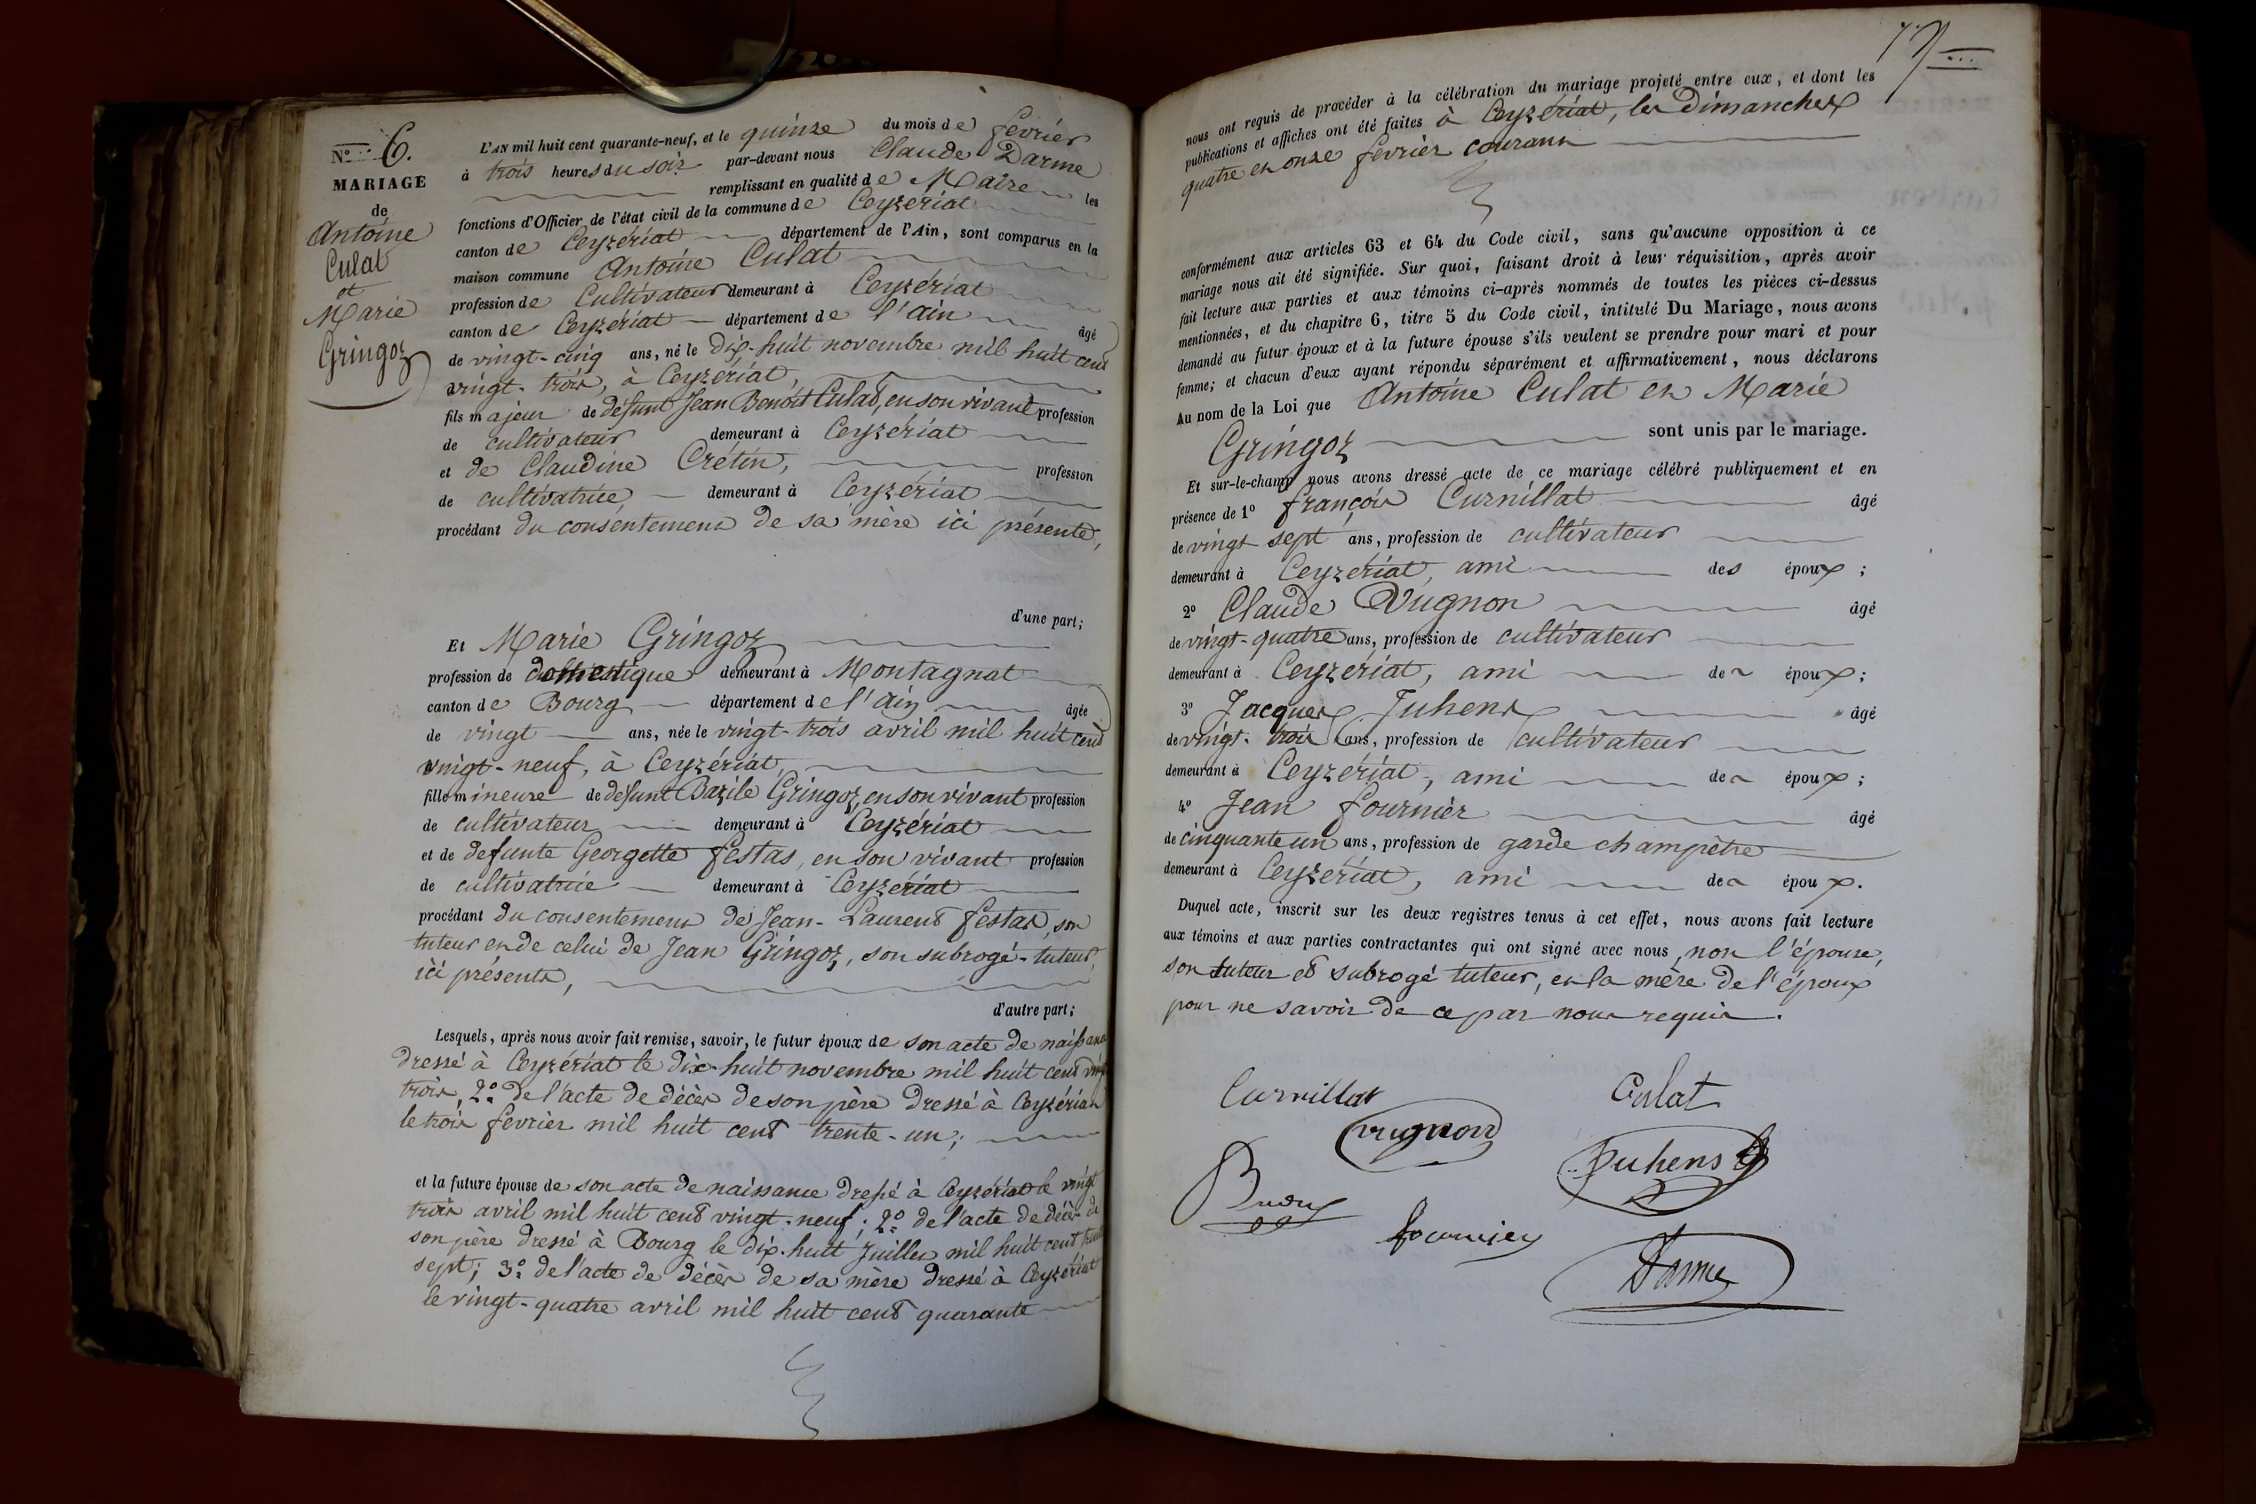 N.º 6.
MARIAGE
de
Antoine
Culat
et
Marie
Gringoz
L'AN mil huit cent quarante-neuf, et le quinze du mois de fevrier
à trois heures du soir par-devant nous Claude Darme
remplissant en qualité de Maire les
fonctions d'Officier de l'état civil de la commune de Ceyzériat
canton de Ceyzériat département de l'Ain, sont comparus en la
maison commune Antoine Culat
profession de Cultivateur demeurant à Ceyzériat
canton de Ceyzériat département de l'ain âgé
de vingt-cinq ans, né le dix-huit novembre mil huit cent
vingt-trois, à Ceyzériat,
fils majeur de défunt Jean Benoit Culat, en son vivant profession
de cultivateur demeurant à Ceyzériat
et de Claudine Crétin, profession
de cultivatrice demeurant à Ceyzériat
procédant du consentement de sa mère ici présente,
d'une part;
Et Marie Gringoz
profession de domestique demeurant à Montagnat
canton de Bourg département de l'ain âgée
de vingt ans, née le vingt-trois avril mil huit cent
vingt-neuf, à Ceyzériat,
fille mineure de défunt Bazile Gringoz, en son vivant profession
de cultivateur demeurant à Ceyzériat
et de defunte Georgette festas, en son vivant profession
de cultivatrice demeurant à Ceyzériat
procédant du consentement de Jean-Laurent festas, son
tuteur et de celui de Jean Gringoz, son subrogé-tuteur,
ici présents,
d'autre part;
Lesquels, après nous avoir fait remise, savoir, le futur époux de son acte de naissance
dressé à Ceyzériat le dix-huit novembre mil huit cent vingt
trois, 2º de l'acte de décès de son père dressé à Ceyzériat
le trois fevrier mil huit cent trente-un;
et la future épouse de son acte de naissance dressé à Ceyzériat le vingt
trois avril mil huit cent vingt-neuf; 2º de l'acte de décès de
son père dressé à Bourg le dix-huit Juillet mil huit cent trente
sept; 3º de l'acte de décès de sa mère dressé à Ceyzériat
le vingt-quatre avril mil huit cent quarante
nous ont requis de procéder à la célébration du mariage projeté entre eux, et dont les
publications et affiches ont été faites à Ceyzériat, les dimanches
quatre et onze fevrier courant
conformément aux articles 63 et 64 du Code civil, sans qu'aucune opposition à ce
mariage nous ait été signifiée. Sur quoi, faisant droit à leur réquisition, après avoir
fait lecture aux parties et aux témoins ci-après nommés de toutes les pièces ci-dessus
mentionnées, et du chapitre 6, titre 5 du Code civil, intitulé Du Mariage, nous avons
demandé au futur époux et à la future épouse s'ils veulent se prendre pour mari et pour
femme; et chacun d'eux ayant répondu séparément et affirmativement, nous déclarons
Au nom de la Loi que Antoine Culat et Marie
Gringoz sont unis par le mariage.
Et sur-le-champ nous avons dressé acte de ce mariage célébré publiquement et en
présence de 1º françois Curnillat âgé
de vingt sept ans, profession de cultivateur
demeurant à Ceyzériat, ami des époux;
2º Claude Vugnon âgé
de vingt-quatre ans, profession de cultivateur
demeurant à Ceyzériat, ami des époux;
3º Jacques Juhens âgé
de vingt-trois ans, profession de cultivateur
demeurant à Ceyzériat, ami des époux;
4º Jean fournier âgé
de cinquante un ans, profession de garde champêtre
demeurant à Ceyzériat, ami des époux.
Duquel acte, inscrit sur les deux registres tenus à cet effet, nous avons fait lecture
aux témoins et aux parties contractantes qui ont signé avec nous, non l'épouse,
son tuteur et subrogé tuteur, et la mère de l'époux
pour ne savoir de ce par nous requis.
Curnillat
Culat
vugnon
Juhens
fournier
Darme